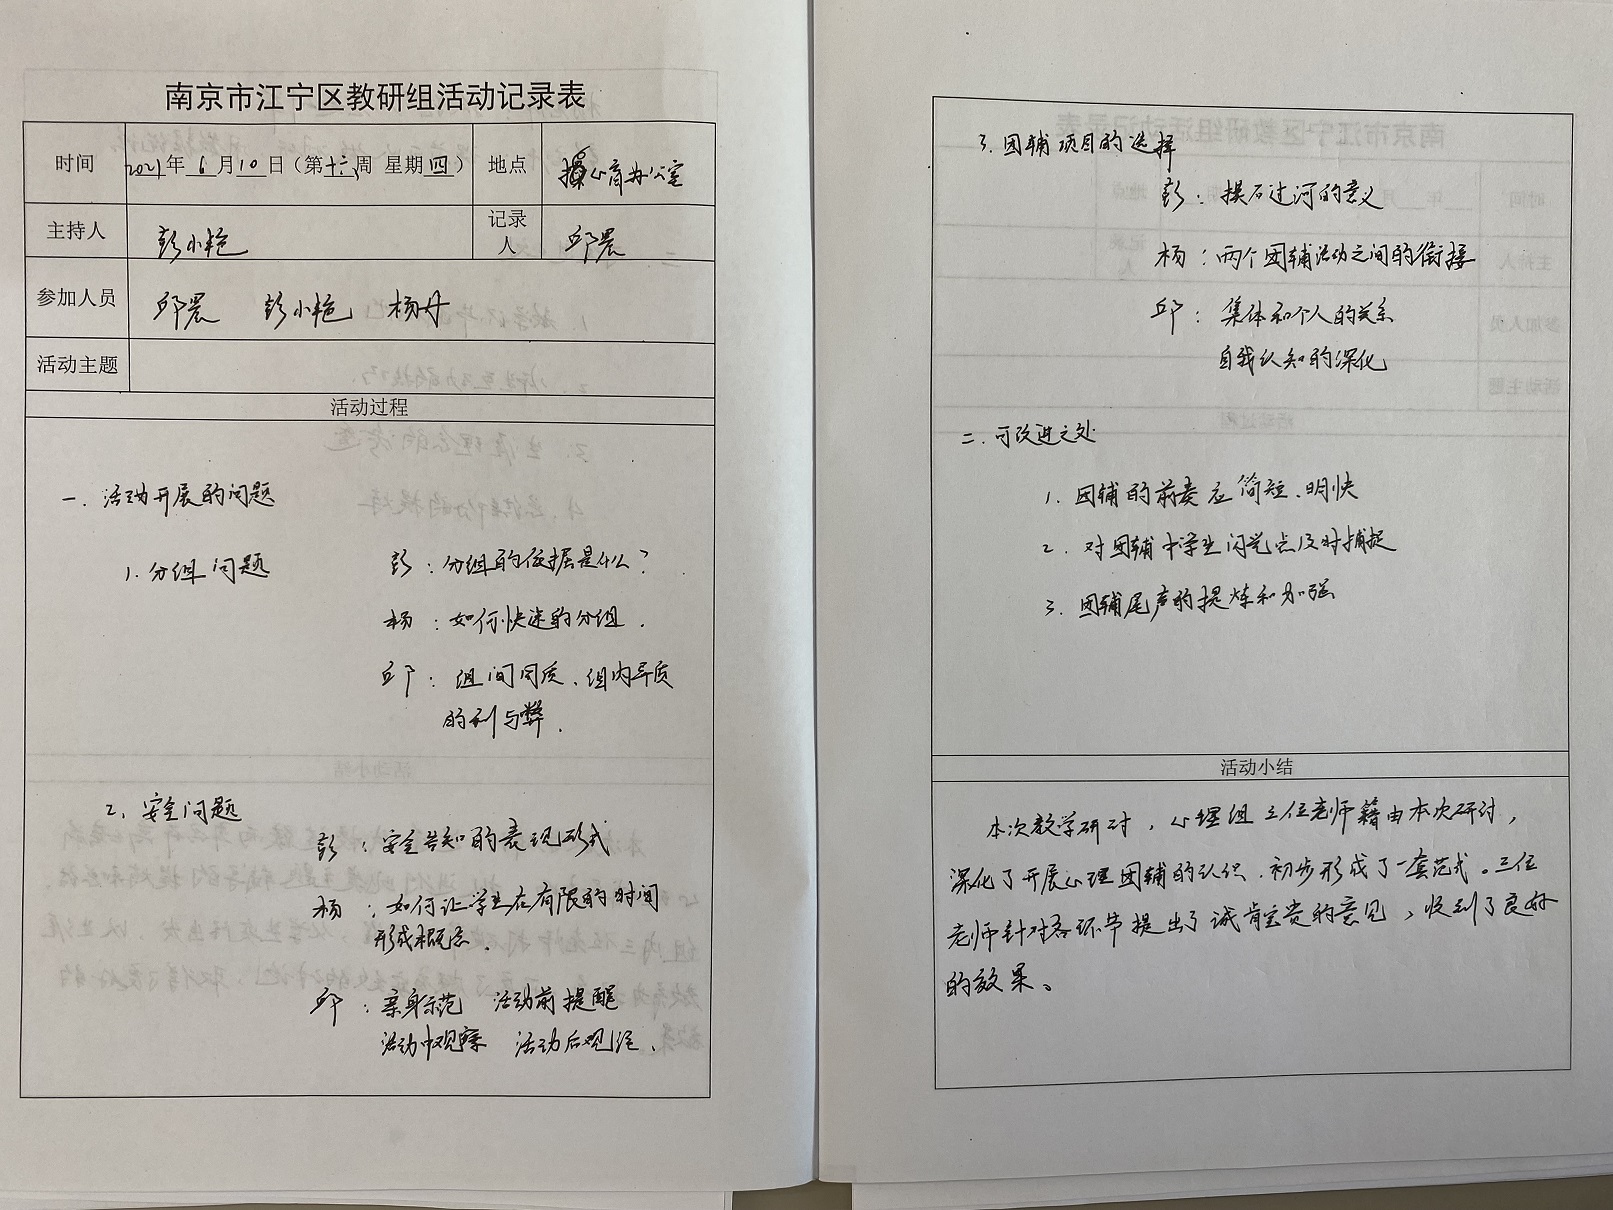 南京市江宁区教研组活动记录表
时间 2021年 6 月 10 日（第十六周 星期四） 地点 心育办公室
主持人 彭小艳 记录人 邱晨
参加人员 邱晨 彭小艳 杨丹
活动主题
活动过程
一、活动开展的问题
1. 分组问题 彭：分组的依据是什么？
杨：如何快速的分组．
邱：组间同质、组内异质
的利与弊．
2、安全问题
彭：安全告知的表现形式
杨：如何让学生在有限的时间
形成概念．
邱：亲身示范 活动前提醒
活动中观察 活动后总结．
3. 团辅项目的选择
彭：摸石过河的意义
杨：两个团辅活动之间的衔接
邱：集体和个人的关系
自我认知的深化
二．可改进之处
1．团辅的前奏应简短、明快
2．对团辅中学生闪光点及时捕捉
3．团辅尾声的提炼和加强
活动小结
本次教学研讨，心理组三位老师籍由本次研讨，
深化了开展心理团辅的认识，初步形成了一套范式。三位
老师针对各环节提出了诚肯宝贵的意见，收到了良好
的效果。